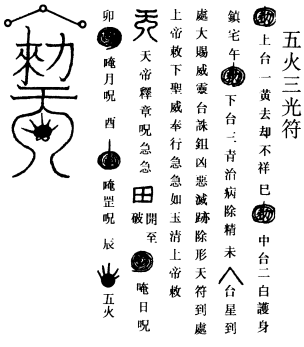 五火三光符
上台一黃去却不祥 巳 中台二白護身
鎮宅午 下台三青治病除精 未 台星到
處大賜威靈台誅鉏凶惡滅跡除形天符到處
上帝敕下聖威奉行急急如玉清上帝敕
天帝釋章呪急急 田 開至破 唵日呪
卯 唵月呪 酉 唵罡呪 辰 五火